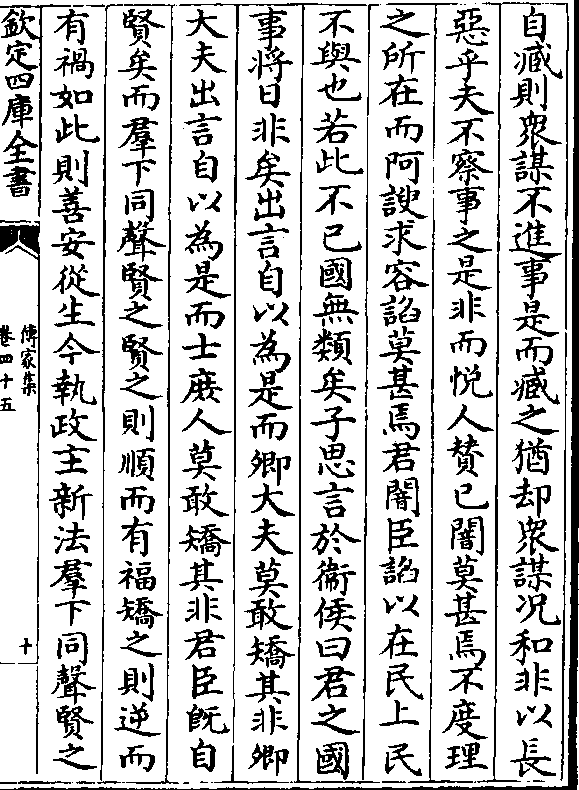 自臧則衆謀不進事是而臧之猶却衆謀况和非以長
惡乎夫不察事之是非而悦人賛已闇莫甚焉不度理
之所在而阿諛求容諂莫甚焉君闇臣諂以在民上民
不與也若此不已國無類矣子思言於衞侯曰君之國
事將日非矣出言自以為是而卿大夫莫敢矯其非卿
大夫出言自以為是而士庶人莫敢矯其非君臣旣自
賢矣而羣下同聲賢之賢之則順而有福矯之則逆而
有禍如此則善安從生今執政主新法羣下同聲賢之
欽定四庫全書
傳家集
卷四十五
十